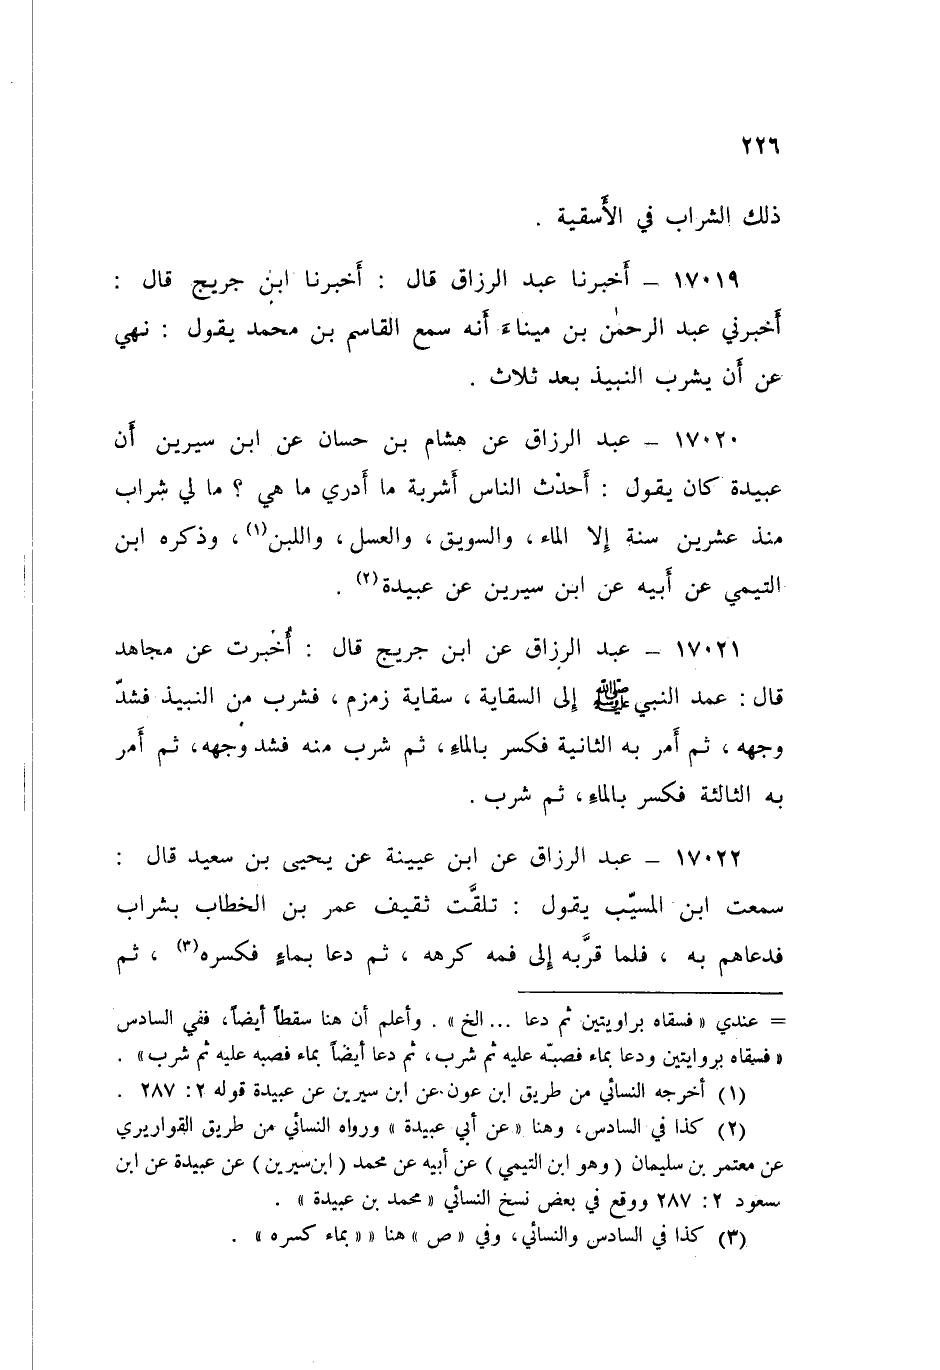 ٢٢٦
ذلك الشراب في الأَسقية .
١٧٠١٩ – أَخبرنا عبد الرزاق قال : أَخبرنا ابن جريج قال :
أَخبرني عبد الرحمٰن بن ميناءَ أَنه سمع القاسم بن محمد يقول : نهي
عن أَن يشرب النبيذ بعد ثلاث .
١٧٠٢٠ – عبد الرزاق عن هشام بن حسان عن ابن سيرين أَن
عبيدة كان يقول : أَحدث الناس أَشربة ما أَدري ما هي ؟ ما لي شراب
منذ عشرين سنة إلا الماء ، والسويق ، والعسل ، واللبن(١) ، وذكره ابن
التيمي عن أَبيه عن ابن سيرين عن عبيدة(٢) .
١٧٠٢١ – عبد الرزاق عن ابن جريج قال : أُخبرت عن مجاهد
قال : عمد النبي ﷺ إلى السقاية ، سقاية زمزم ، فشرب من النبيذ فشدّ
وجهه ، ثم أَمر به الثانية فكسر بالماءِ ، ثم شرب منه فشد وجهه ، ثم أَمر
به الثالثة فكسر بالماءِ ، ثم شرب .
١٧٠٢٢ – عبد الرزاق عن ابن عيينة عن يحيى بن سعيد قال :
سمعت ابن المسيّب يقول : تلقَّت ثقيف عمر بن الخطاب بشراب
فدعاهم به ، فلما قرَّبه إلى فمه كرهه ، ثم دعا بماءٍ فكسره(٣) ، ثم
= عندي « فسقاه براويتين ثم دعا ... الخ » . وأعلم أن هنا سقطاً أيضاً ، ففي السادس
« فسقاه بروايتين ودعا بماء فصبّه عليه ثم شرب ، ثم دعا أيضاً بماء فصبه عليه ثم شرب » .
(١) أخرجه النسائي من طريق ابن عون عن ابن سيرين عن عبيدة قوله ٢ : ٢٨٧ .
(٢) كذا في السادس ، وهنا « عن أبي عبيدة » ورواه النسائي من طريق القواريري
عن معتمر بن سليمان ( وهو ابن التيمي ) عن أبيه عن محمد ( ابن سيرين ) عن عبيدة عن ابن
سعود ٢ : ٢٨٧ ووقع في بعض نسخ النسائي « محمد بن عبيدة » .
(٣) كذا في السادس والنسائي ، وفي « ص » هنا « « بماء كسره » .